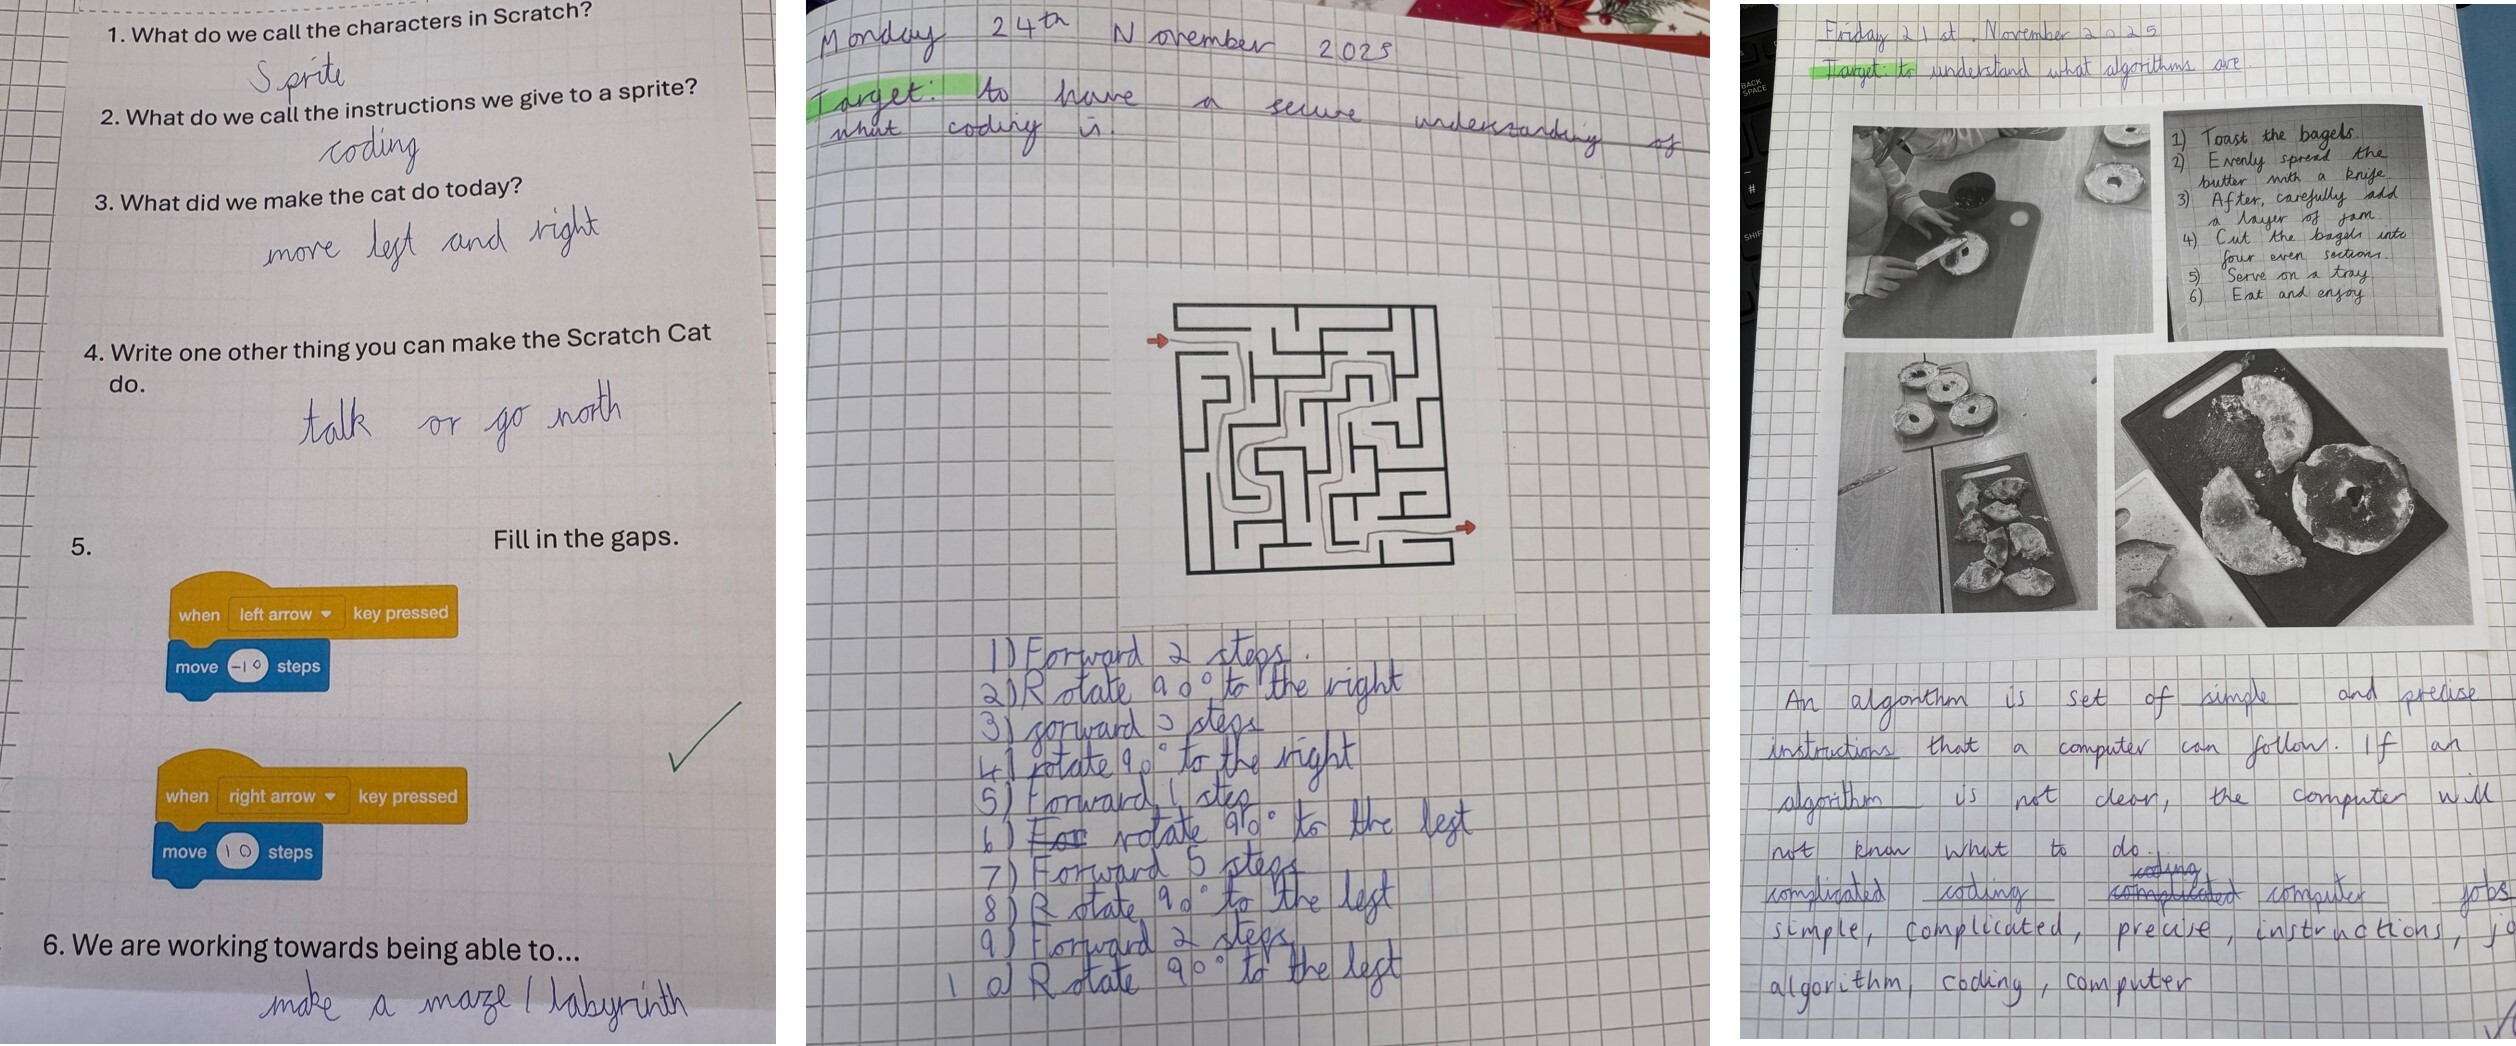 1. What do we call the characters in Scratch?
Sprite
2. What do we call the instructions we give to a sprite?
coding
3. What did we make the cat do today?
move left and right
4. Write one other thing you can make the Scratch Cat
do.
talk or go north
5.
Fill in the gaps.
when left arrow key pressed
move -10 steps
when right arrow key pressed
move 10 steps
6. We are working towards being able to...
make a maze / labyrinth
Monday 24th November 2025
Target: to have a secure understanding of
what coding is.
1) Forward 2 steps.
2) Rotate 90° to the right
3) forward 3 steps
4) rotate 90° to the right
5) Forward 1 step
6) For rotate 90° to the left
7) Forward 5 steps
8) Rotate 90° to the left
9) Forward 2 steps
10) Rotate 90° to the left
Friday 21st November 2025
Target: to understand what algorithms are.
BACK
SPACE
#
SHIF
1) Toast the bagels.
2) Evenly spread the
butter with a knife
3) After, carefully add
a layer of jam.
4) Cut the bagels into
four even sections.
5) Serve on a tray
6) Eat and enjoy
An algorithm is set of simple and precise
instructions that a computer can follow. If an
algorithm is not clear, the computer will
not know what to do.
coding
complicated coding complicated computer jobs
simple, complicated, precise, instructions, jo
algorithm, coding, computer